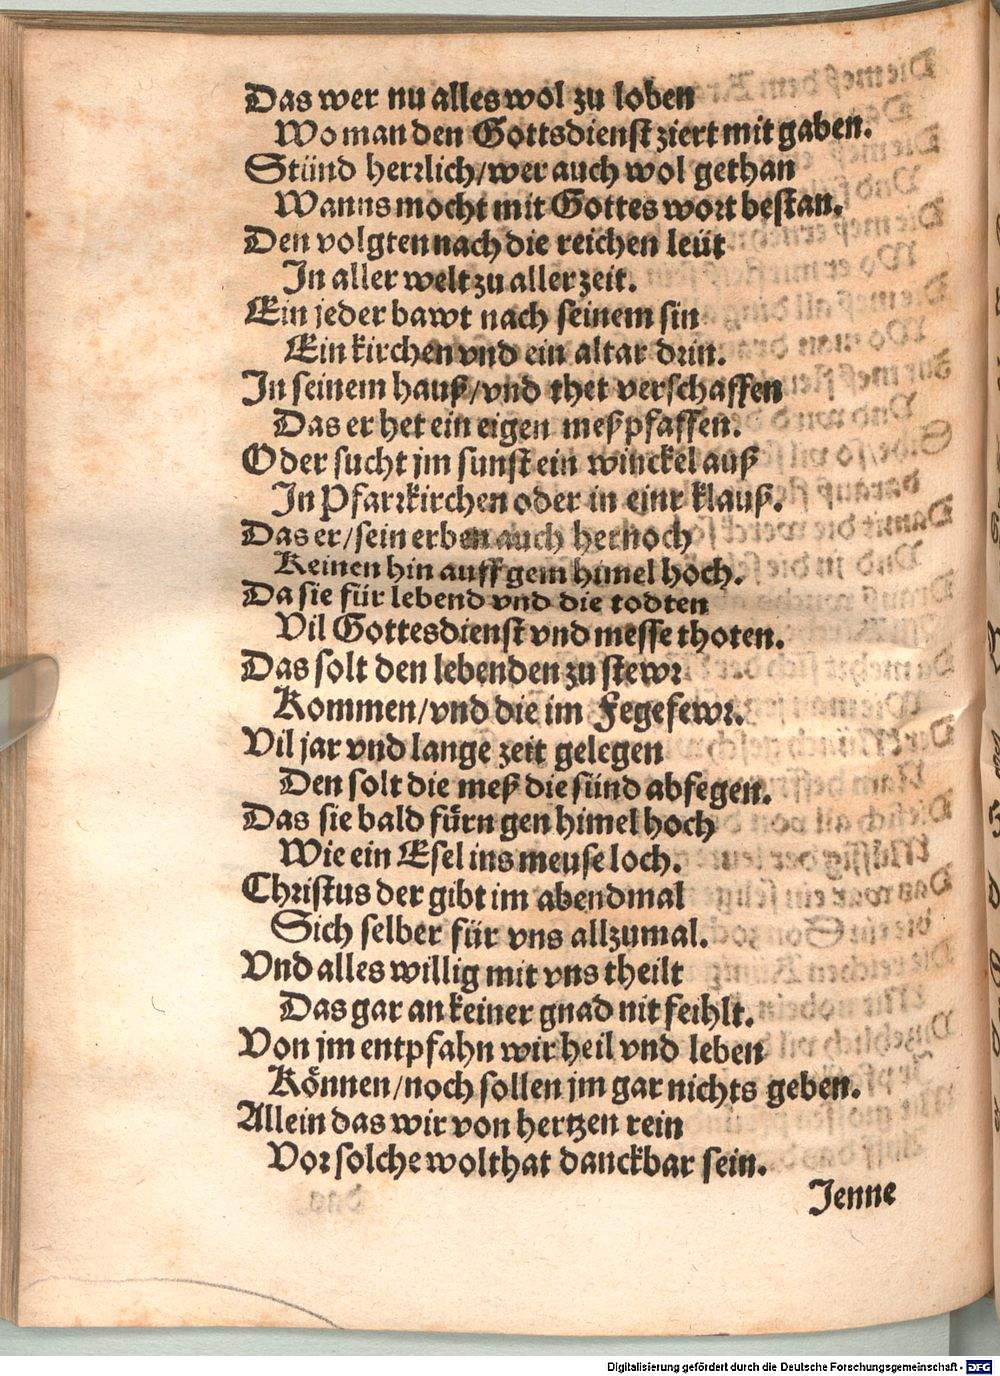 Das wer nu alles wol zu loben
Wo man den Gottsdienst ziert mit gaben.
Stünd herrlich/wer auch wol gethan
Wanns mocht mit Gottes wort bestan.
Den volgten nach die reichen leüt
In aller welt zu aller zeit.
Ein jeder bawt nach seinem sin
Ein kirchen vnd ein altar drin.
In seinem hauß/vnd thet verschaffen
Das er het ein eigen meßpfaffen.
Oder sucht jm sunst ein winckel auß
In Pfarrkirchen oder in einr klauß.
Das er/sein erben auch hernoch
Keinen hin auff gem himel hoch.
Da sie für lebend vnd die todten
Vil Gottesdienst vnd messe thoten.
Das solt den lebenden zu stewr
Kommen/vnd die im Fegefewr.
Vil jar vnd lange zeit gelegen
Den solt die meß die sünd abfegen.
Das sie bald fürn gen himel hoch
Wie ein Esel ins meuse loch.
Christus der gibt im abendmal
Sich selber für vns allzumal.
Vnd alles willig mit vns theilt
Das gar an keiner gnad nit feihlt.
Von jm entpfahn wir heil vnd leben
Können/noch sollen jm gar nichts geben.
Allein das wir von hertzen rein
Vor solche wolthat danckbar sein.
Jenne
Digitalisierung gefördert durch die Deutsche Forschungsgemeinschaft - DFG